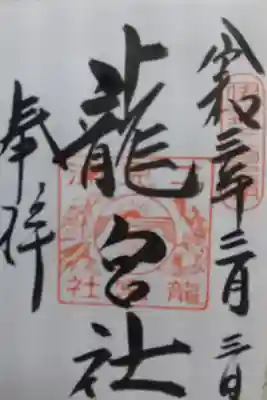 令和二年二月三日
龍宮社
奉拝